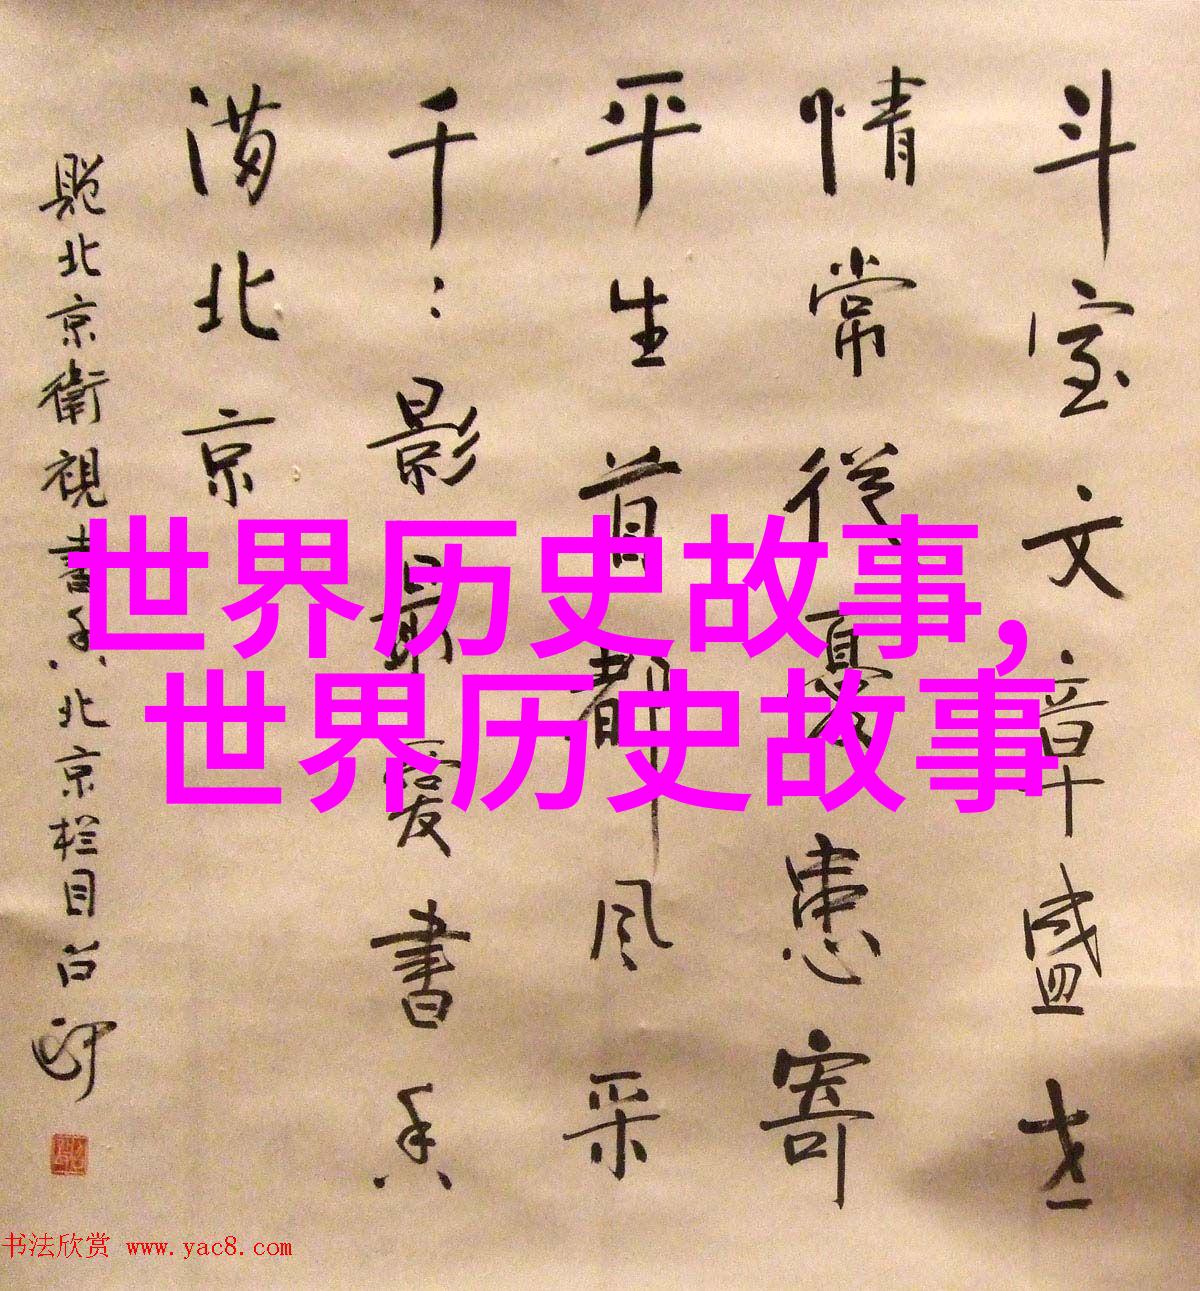 斗室文章盛世
情常從憂患寄
平生首都风采
千〻影最愛書香
满北京
题北京衛視書香北京栏目
世界历史故事,
世界历史故事
书法欣赏 www.yac8.com